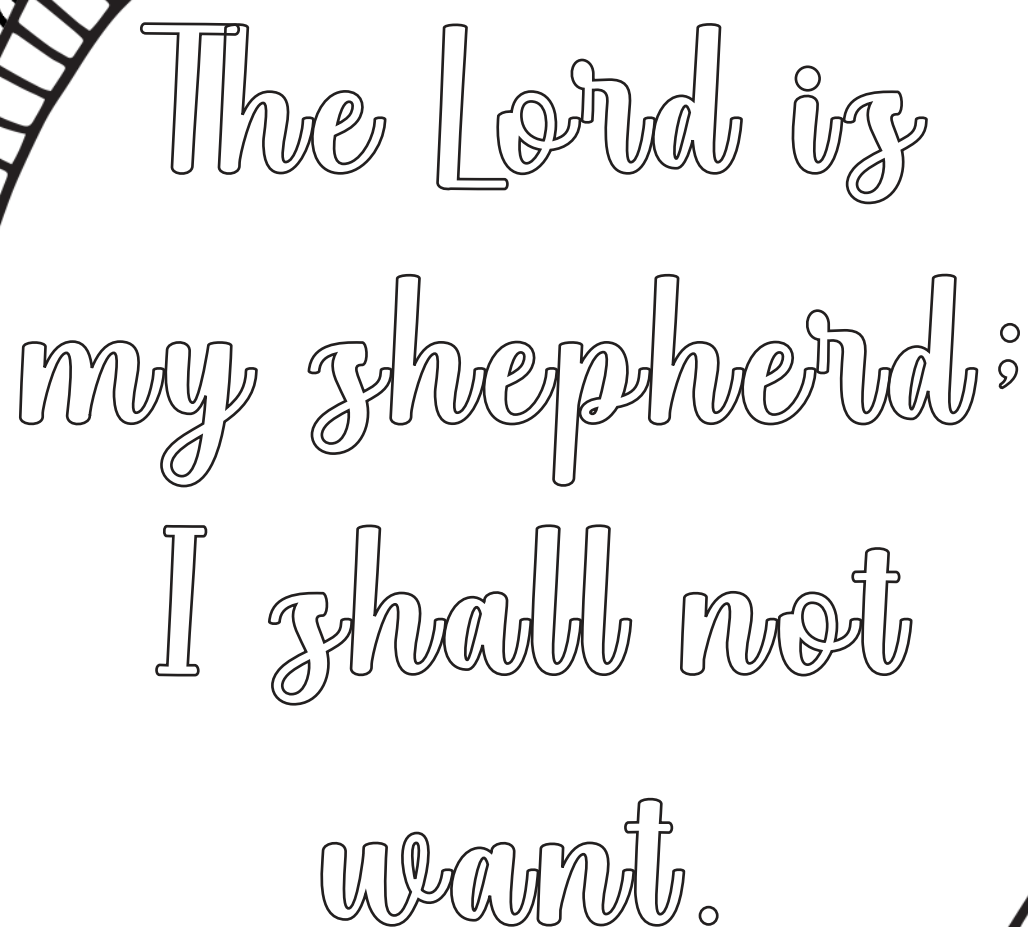 The Lord is
my shepherd;
I shall not
want.